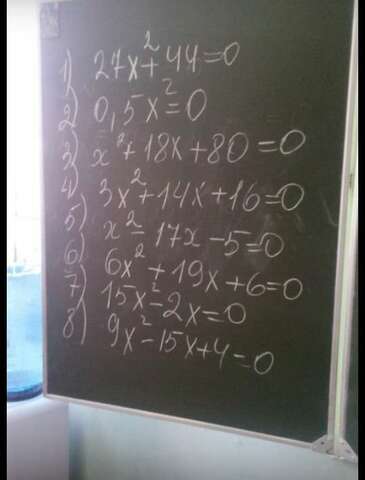 1) 27x²+44=0
2) 0,5x²=0
3) x²+18x+80=0
4) 3x²+14x+16=0
5) x²-17x-5=0
6) 6x²+19x+6=0
7) 15x²-2x=0
8) 9x²-15x+4=0